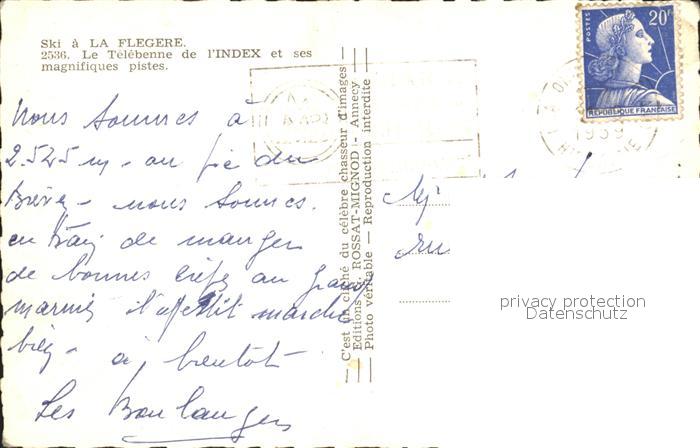 Ski à LA FLEGERE.
2536. Le Télébenne de l'INDEX et ses
magnifiques pistes.
Nous sommes à
2.525 m - au pic du
Brévent - nous sommes
en train de manger
de bonnes crêpes au grand
marnier l'appétit marche
bien - à bientôt
Les Boulanger
— C'est un cliché du célèbre chasseur d'images —
— Editions ROSSAT-MIGNOD - Annecy —
— Photo véritable — Reproduction interdite —
POSTES
20F
REPUBLIQUE FRANÇAISE
1959
privacy protection
Datenschutz